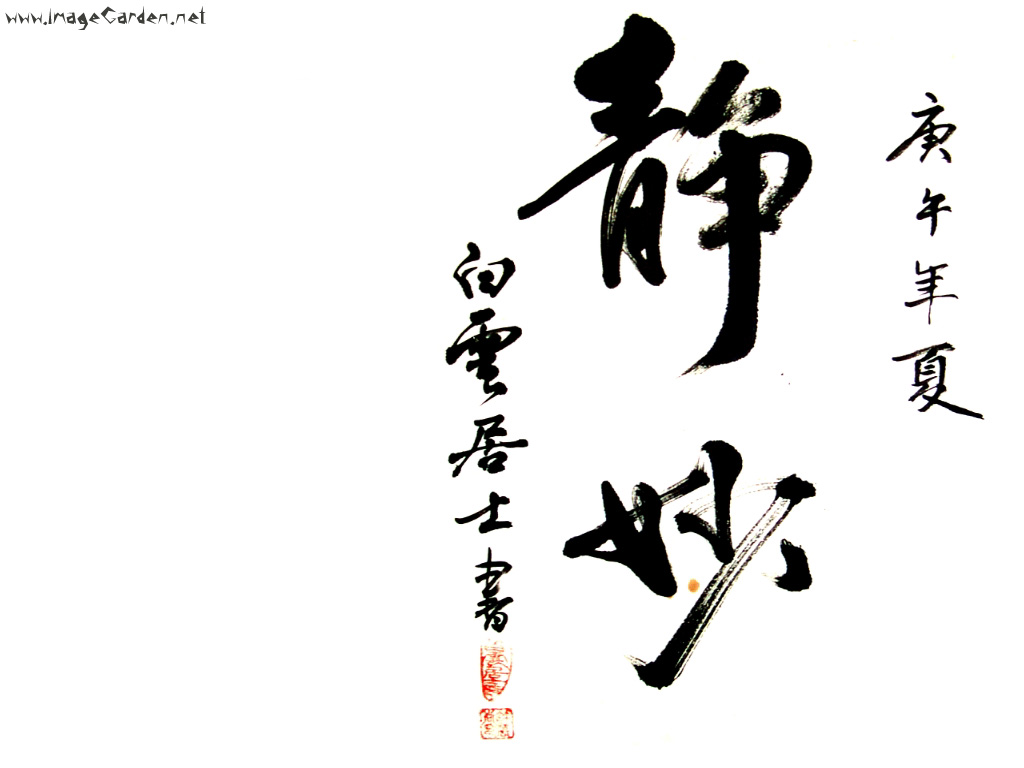 www.ImageGarden.net
庚午年夏
静妙
白雲居士書